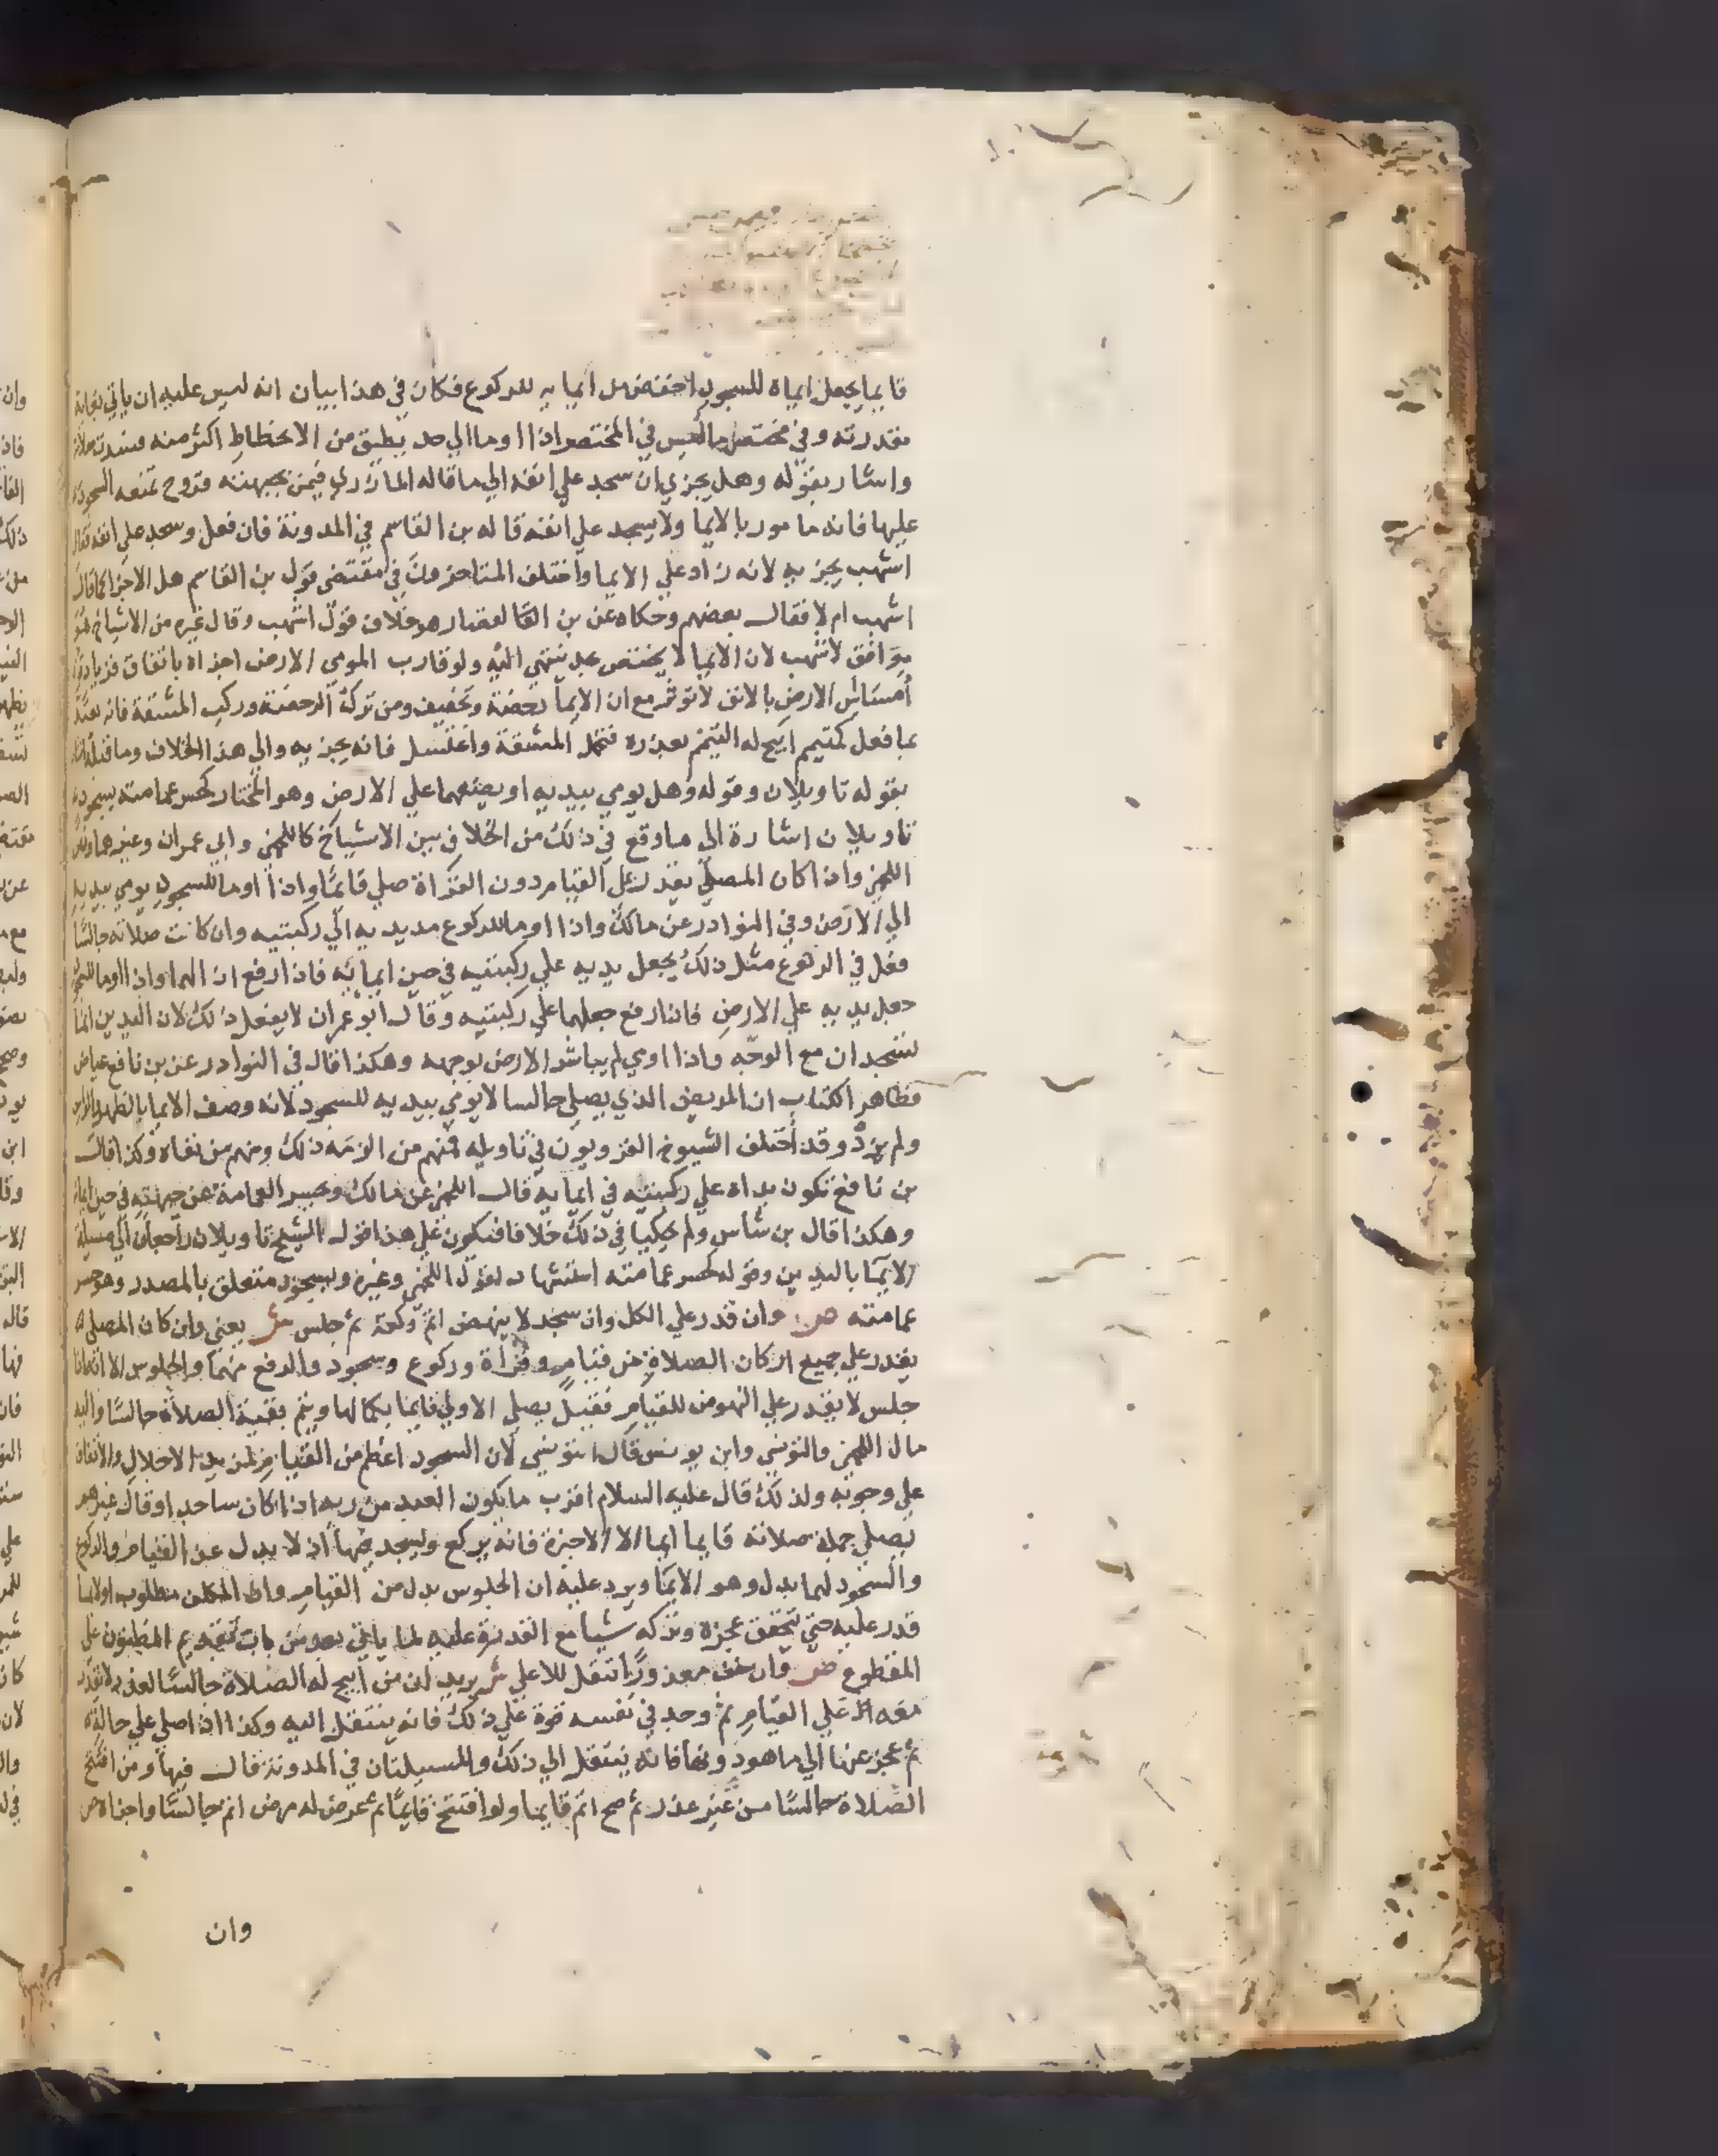 قايما يجعل ايماه للسجود اخفض من ايمايه للركوع فكان في هذا بيان انه ليس عليه ان ياتي بغاية
مقدرته وفي مختصر ما ليس في المختصر اذا اوما الي حد يطيق من الانحطاط اكثر منه فسدت صلاته
واشار بقوله وهل يجزي ان سجد علي انفه الي ما قاله المازري فيمن بجبهته قروح تمنعه السجود
عليها فانه مامور بالايما ولا يسجد علي انفه قاله بن القاسم في المدونة فان فعل وسجد علي انفه فقال
اشهب يجزيه لانه زاد علي الايما واختلف المتاخرون في مقتضي قول بن القاسم هل الاجزا كما قال
اشهب ام لا فقال بعضهم وحكاه عن بن القصار هو خلاف قول اشهب وقال غيره من الاشياخ هو
موافق لاشهب لان الايما لا يختص بحد ينتهي اليه ولو قارب المومي الارض اجزاه باتفاق فزيادة
امساس الارض بالانف لا توثر مع ان الايما رخصة وتخفيف ومن ترك الرخصة وركب المشقة فانه يعتد
بما فعل كمتيمم ابيح له التيمم بعذره فتحمل المشقة واغتسل فانه يجزيه والي هذا الخلاف وما قبله اشار
بقوله تاويلان وقوله وهل يومي بيديه او يضعهما علي الارض وهو المختار كحسر عمامته بسجود
تاويلان اشارة الي ما وقع في ذلك من الخلاف بين الاشياخ كاللخمي وابي عمران وغيرهما
اللخمي واذا كان المصلي يقدر علي القيام دون القراة صلي قائما واذا اوما للسجود يومي بيديه
الي الارض وفي النوادر عن مالك واذا اوما للركوع مد يديه الي ركبتيه وان كانت صلاته جالسا
فعل في الركوع مثل ذلك يجعل يديه علي ركبتيه في حين ايمائه فاذا رفع ازالهما واذا اوما للسجود
جعل يديه علي الارض فاذا رفع جعلهما علي ركبتيه وقال ابو عمران لا يفعل ذلك لان اليدين انما
تسجدان مع الوجه واذا اومي لم يباشر الارض بوجهه وهكذا قال في النوادر عن بن نافع عياض
فظاهر الكتاب ان المريض الذي يصلي جالسا لا يومي بيديه للسجود لانه وصف الايما بالظهر والراس
ولم يزد وقد اختلف الشيوخ القرويون في تاويله فمنهم من الزمه ذلك ومنهم من نفاه وكذا قال
بن نافع تكون يداه علي ركبتيه في ايمايه قال اللخمي عن مالك ويحسر العمامة عن جبهته في حين ايمايه
وهكذا قال بن شاس ولم يحكيا في ذلك خلافا فيكون علي هذا قول الشيخ تاويلان راجعان الي مسيلة
الايما باليدين وقوله كحسر عمامته استشهاد لقول اللخمي وغيره ولسجود متعلق بالمصدر وهو حسر
عمامته ص وان قدر علي الكل وان سجد لا ينهض اتم ركعة ثم جلس ش يعني وان كان المصلي
يقدر علي جميع اركان الصلاة من قيام وقراة وركوع وسجود والرفع منهما والجلوس الا انه اذا
جلس لا يقدر علي النهوض للقيام فقيل يصلي الاولي قايما بكمالها ويتم بقية الصلاة جالسا واليه
مال اللخمي والتونسي وابن يونس قال التونسي لان السجود اعظم من القيام لمزيد الاجلال والاتفاق
علي وجوبه ولذلك قال عليه السلام اقرب ما يكون العبد من ربه اذا كان ساجدا وقال غيرهم
يصلي جملة صلاته قايما ايما الا الاخيرة فانه يركع ويسجد فيها اذ لا بدل عن القيام والركوع
والسجود لهما بدل وهو الايما ويرد عليه ان الجلوس بدل من القيام وان المكلف مطلوب اولا بما
قدر عليه حتي يتحقق عجزه وتركه شيا مع القدرة عليه لما ياتي بعد من باب تقديم المظنون علي
المقطوع ص وان خف معذور انتقل للاعلي ش يريد ان من ابيح له الصلاة جالسا لعذر لا يقدر
معه علي القيام ثم وجد في نفسه قوة علي ذلك فانه ينتقل اليه وكذا اذا صلي علي حالة
ثم عجز عنها الي ما هو دونها فانه ينتقل الي ذلك والمسيلتان في المدونة قال فيها ومن افتتح
الصلاة جالسا من عذر ثم صح اتم قايما ولو افتتح قايما ثم عرض له مرض اتم جالسا واجزاه ص
وان